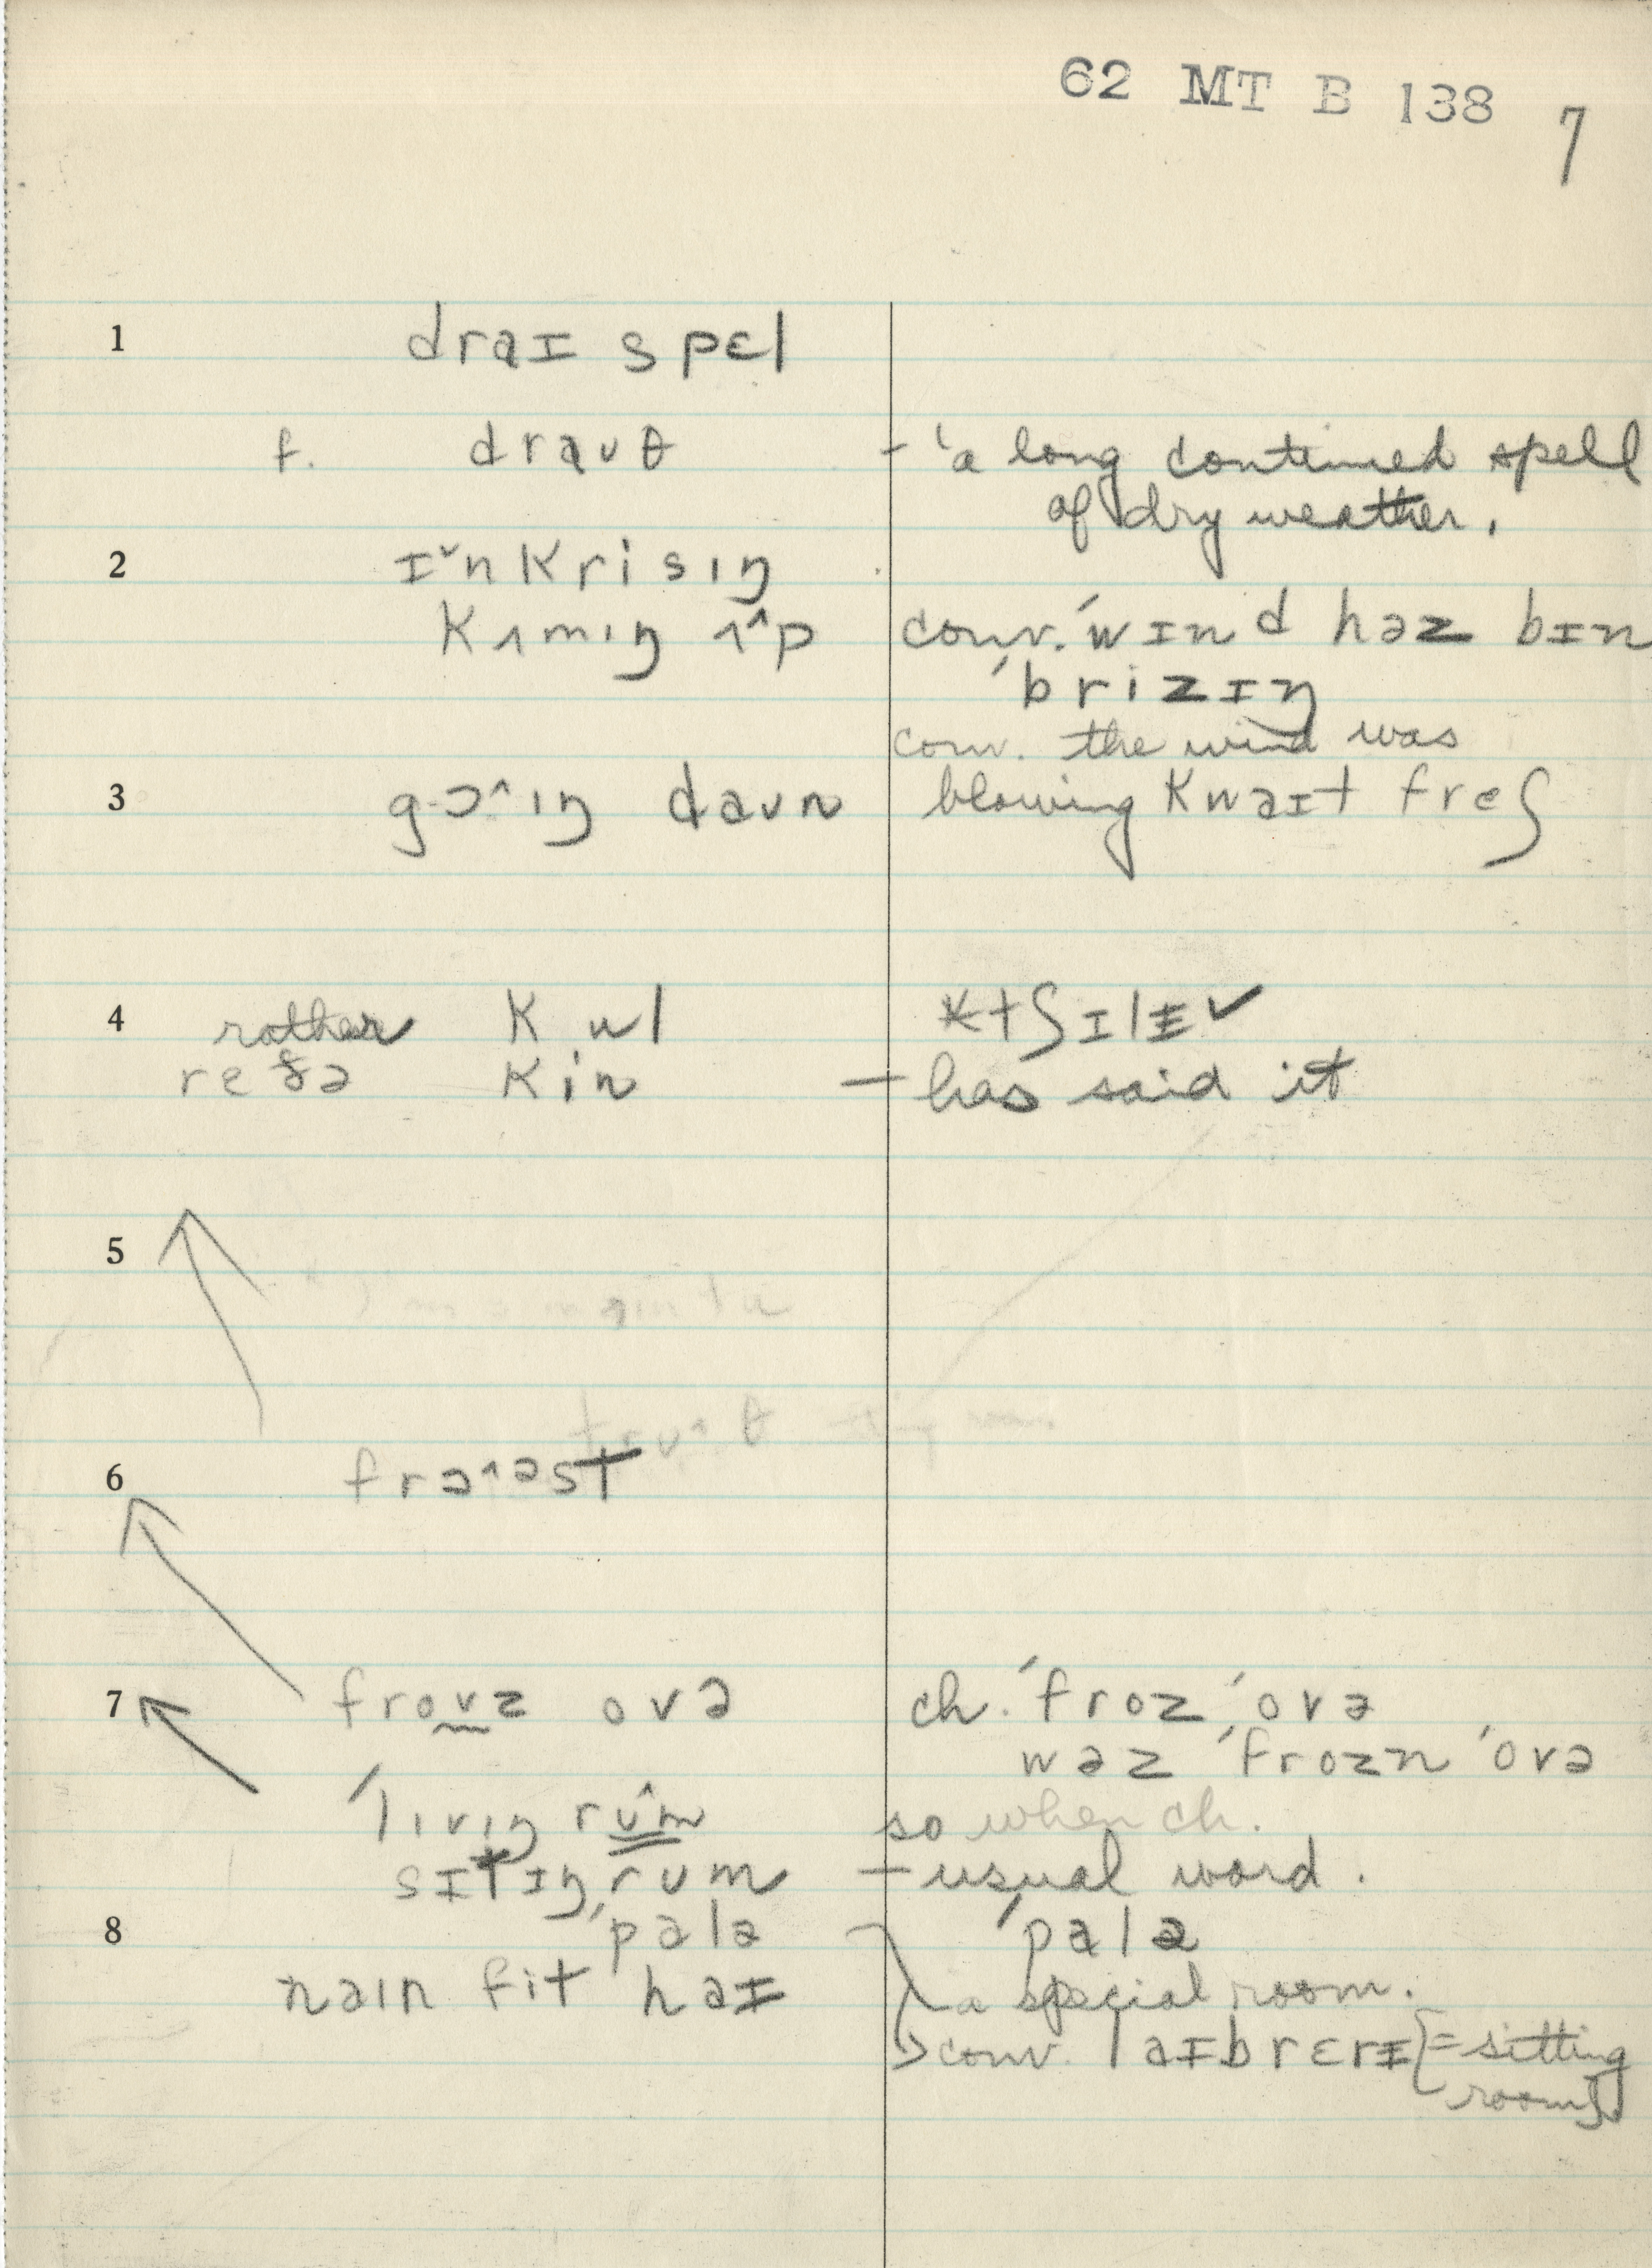 62 MT B 138 7
1 draɪ spɛl
f. draʊθ - 'a long continued spell
of dry weather.
2 ɪ˅nkrisɪŋ
kʌmɪŋ ʌ^p conv. ˈwɪnd həz bɪn
ˈbrizɪŋ
conv. the wind was
3 g-ɔ^ɪŋ daʊn blowing kwaɪt freʃ
4 rather kul
reðə kin — has said it
6 frɔ^əst
7 froʊz ovə ch. ˈfroz ˈovə
wəz ˈfrozn ˈovə
ˈlɪvɪŋ rum so when ch.
sɪtɪŋ rum — usual word.
8 ˈpalə ˈpalə
naɪn fit haɪ a special room.
conv. laɪbrɛrɪ {= sitting
room}